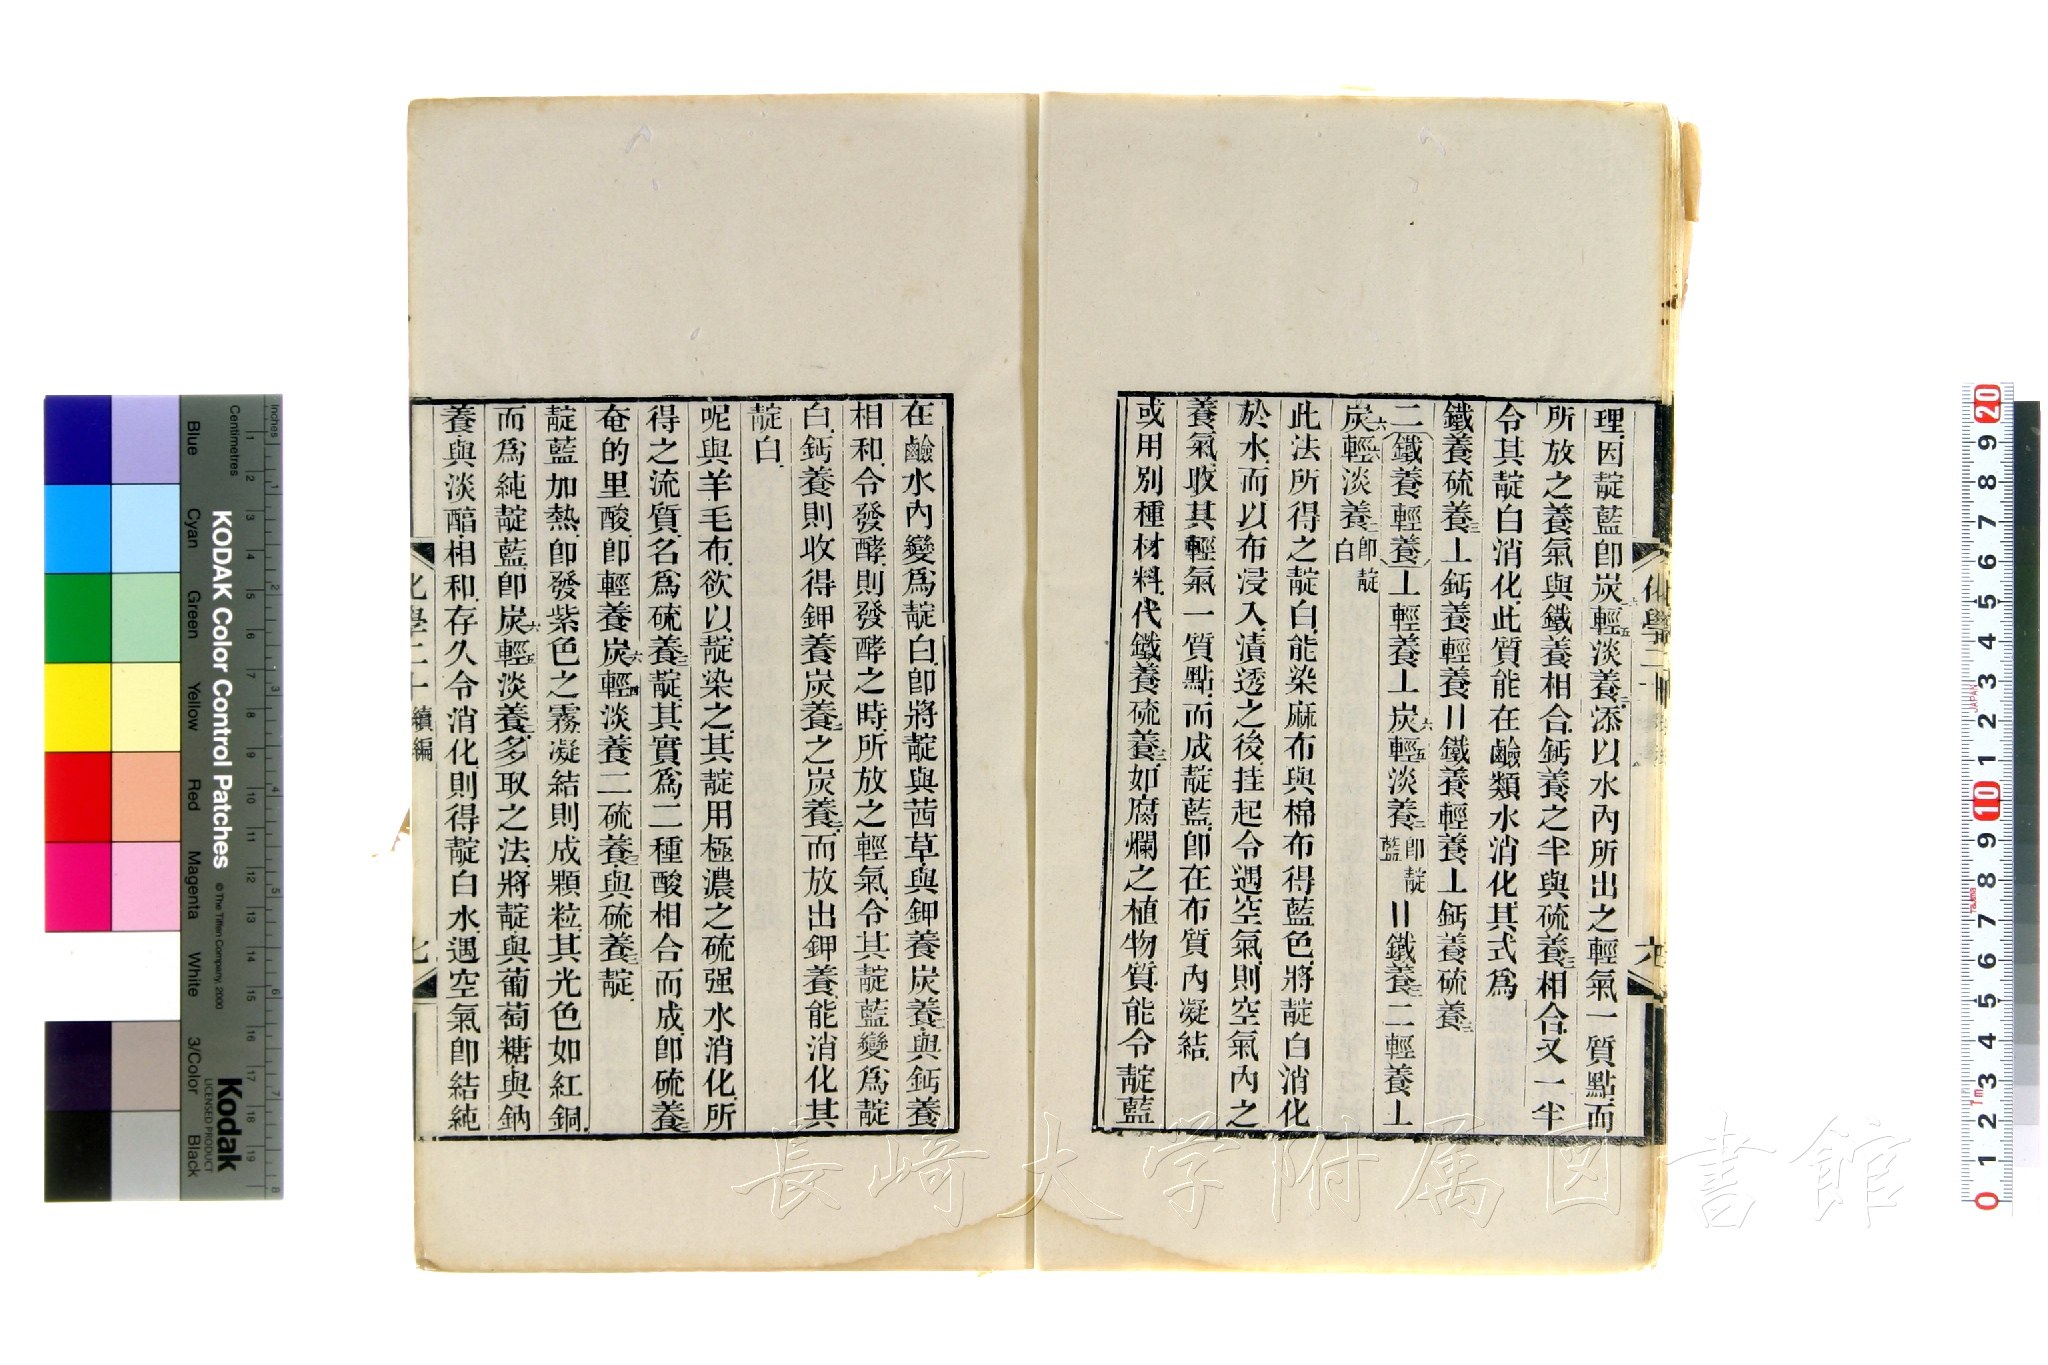 理因靛藍卽炭輕五淡養二添以水內所出之輕氣一質點而
所放之養氣與鐵養相合鈣養之半與硫養三相合又一半
令其靛白消化此質能在鹼類水消化其式為
鐵養硫養三⊥鈣養輕養〢鐵養輕養⊥鈣養硫養三
二(鐵養輕養)⊥輕養⊥炭六輕五淡養二卽靛藍〢鐵養三二輕養⊥
炭六輕六淡養二卽靛白
此法所得之靛白能染麻布與棉布得藍色將靛白消化
於水而以布浸入漬透之後挂起令遇空氣則空氣內之
養氣收其輕氣一質點而成靛藍卽在布質內凝結
或用別種材料代鐵養硫養三如腐爛之植物質能令靛藍
在鹼水內變為靛白卽將靛與茜草與鉀養炭養二與鈣養
相和令發酵則發酵之時所放之輕氣令其靛藍變為靛
白鈣養則收得鉀養炭養二之炭養二而放出鉀養能消化其
靛白
呢與羊毛布欲以靛染之其靛用極濃之硫强水消化所
得之流質名為硫養三靛其實為二種酸相合而成卽硫養三
奄的里酸卽輕養炭六輕四淡養二硫養三與硫養三靛
靛藍加熱卽發紫色之霧凝結則成顆粒其光色如紅銅
而為純靛藍卽炭六輕五淡養二多取之法將靛與葡萄糖與鈉
養與淡醕相和存久令消化則得靛白水遇空氣卽結純
化學二十 續編
長崎大学附属図書館
KODAK Color Control Patches
© The Tiffen Company, 2000
Kodak
LICENSED PRODUCT
Inches
Centimetres
Blue
Cyan
Green
Yellow
Red
Magenta
White
3/Color
Black
JAPAN